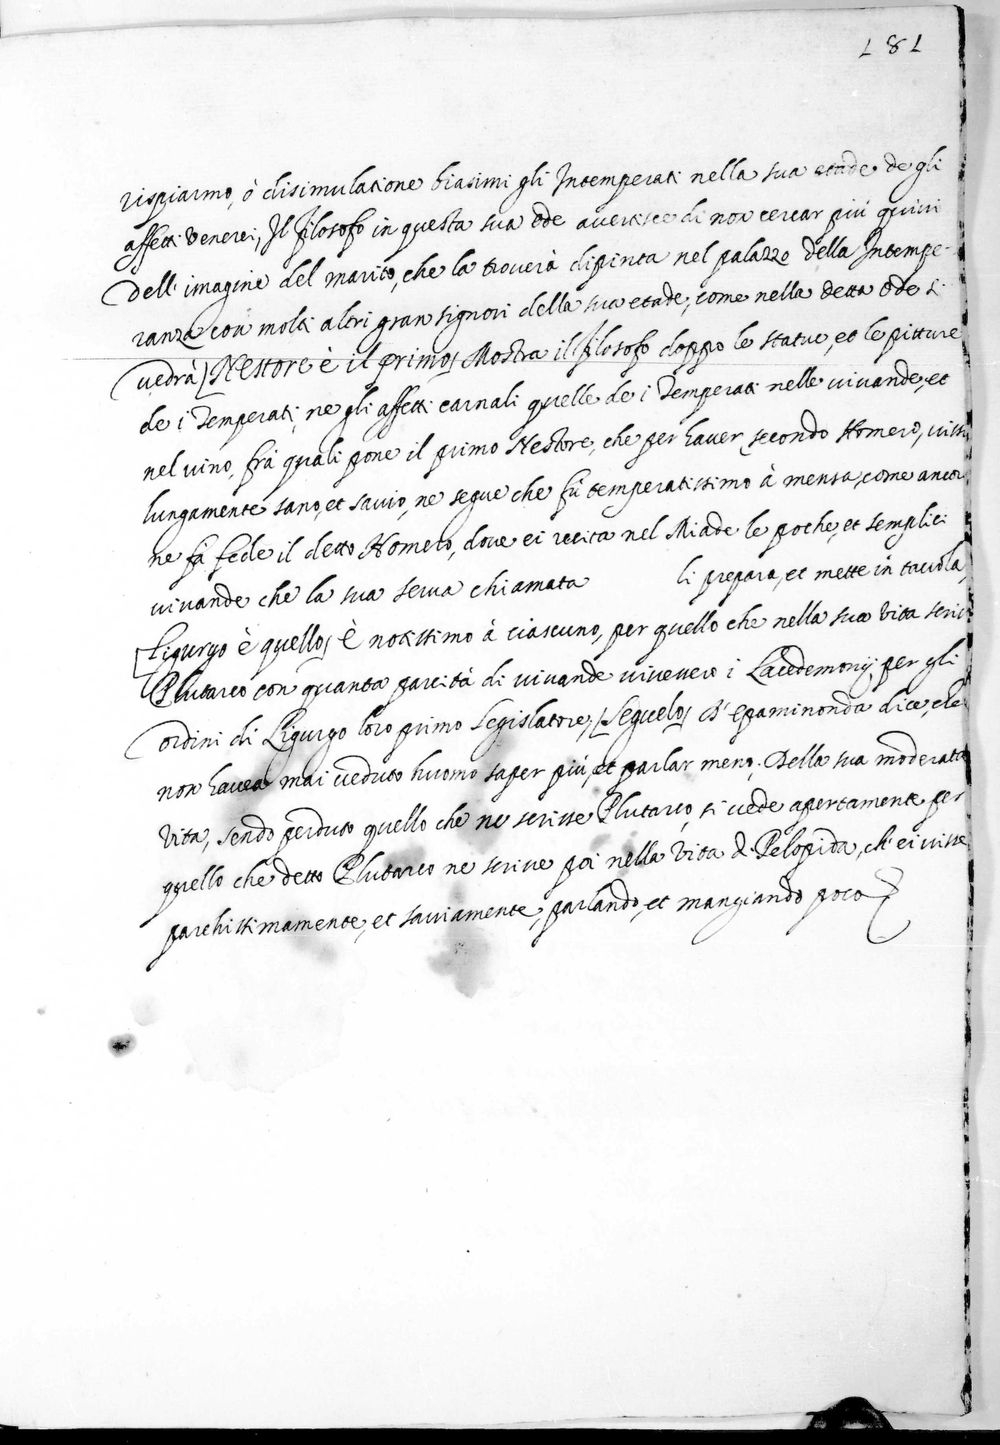 181
rispiarmo, ò disimulatione biasimi gli Intemperati nella sua etade de gli
affetti Venerei, Il filosofo in questa sua Ode avertisce di non cercar più quivi
dell' imagine del marito, che la troverà dipinta nel palazzo della Intempe-
ranza con molti altri gran signori della sua etade, come nella detta Ode si
vedrà] Nestore è il primo] Mostra il filosofo doppo le statue, et le pitture
de i Temperati, ne gli affetti carnali quelle de i Temperati nelle vivande, et
nel vino, frà quali pone il primo Nestore, che per haver, secondo Homero, vissu
lungamente sano, et savio, ne segue che fù temperatissimo à mensa, come ancor
ne fà fede il detto Homero, dove ei recita nel Iliade le poche, et semplici
vivande che la sua serva chiamata li prepara, et mette in tavola,
[Ligurgo è quello] è notissimo à ciascuno, per quello che nella sua Vita scriv
Plutarco con quanta parcità di vivande vivevero i Lacedemonij per gli
ordini di Ligurgo loro primo legislatore, [Seguelo] D' Epaminonda dice, che
non havea mai veduto huomo saper più, et parlar meno. Della sua moderata
Vita, sendo perduto quello che ne scrisse Plutarco, si vede apertamente per
quello che detto Plutarco ne scrive poi nella Vita di Pelopida, ch' ei visse
parchissimamente, et saviamente, parlando, et mangiando poco